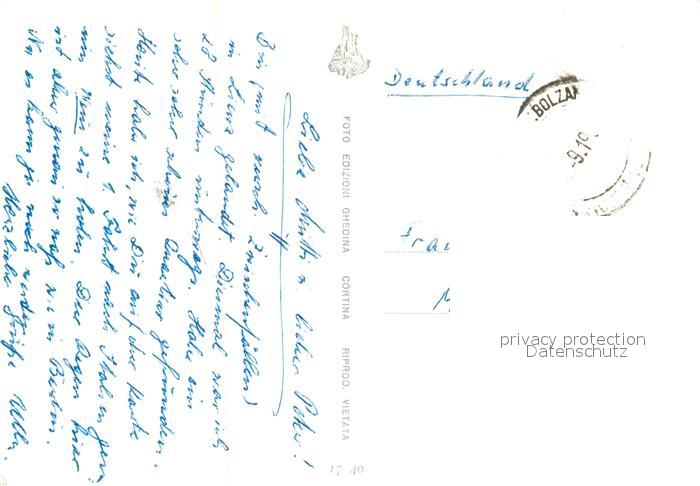 Liebe Mutti u. lieber Peter!
Bin (mit
in Lienz gelandet. Diesmal war ich
28 Stunden unterwegs. Habe ein
sehr sehr schönes Quartier gefunden.
Heute habe ich, wie Du auf der Karte
siehst meine 1. Fahrt nach Italien
um Wein zu holen. Der Regen hier
ist aber genau so naß wie in Berlin.
Na es kann ja noch werden.
Herzliche Grüße
FOTO EDIZIONI GHEDINA CORTINA RIPROD. VIETATA
17 40
Deutschland
BOLZA
9.19
Frau
privacy protection
Datenschutz